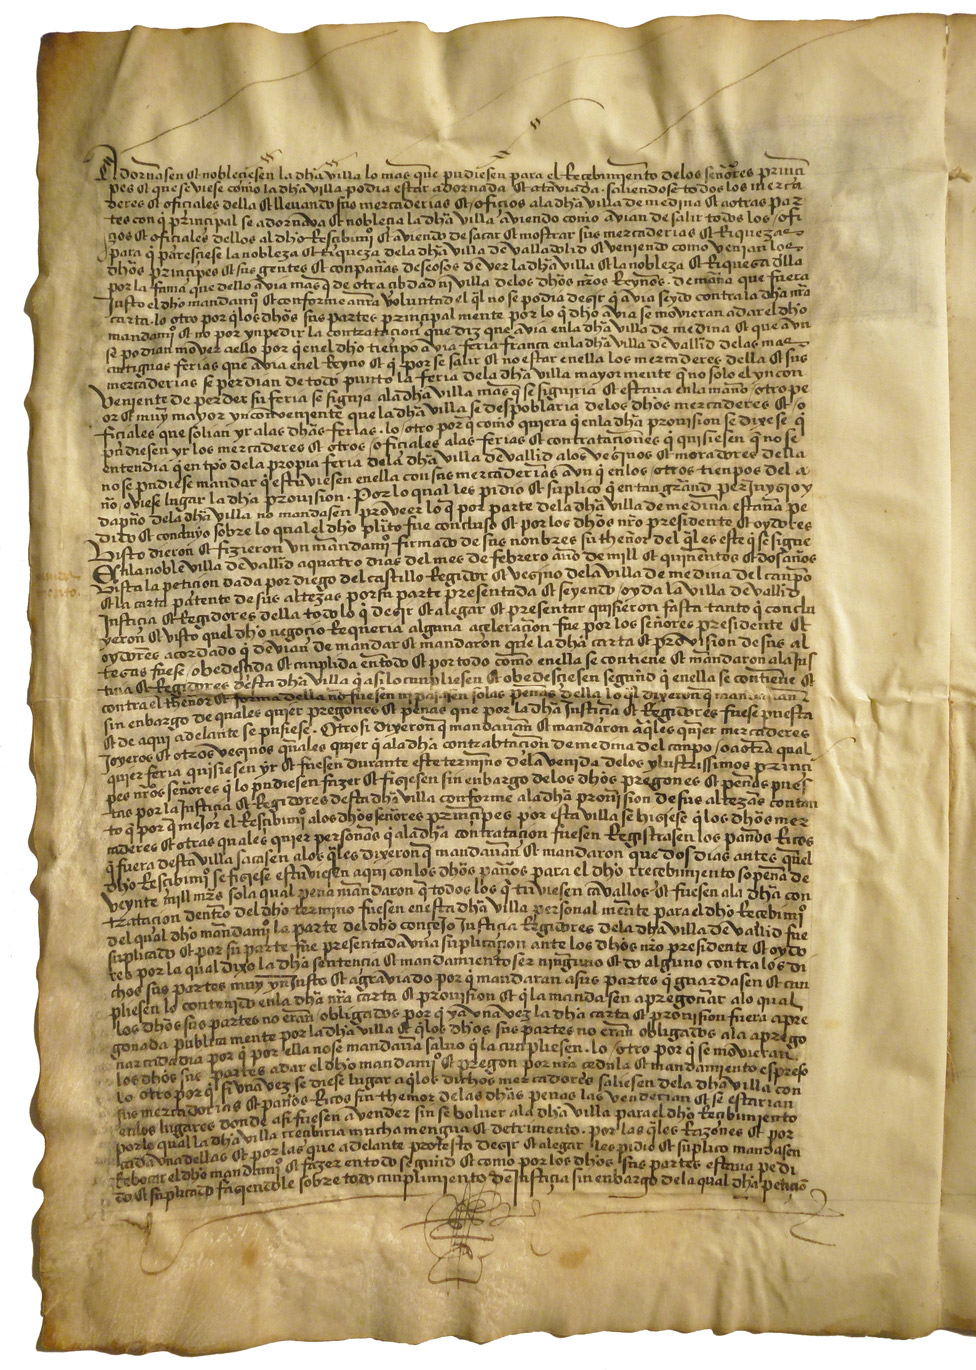 Adornasen et nobleciesen la dha villa lo mas que pudiesen para el Recebimiento delos señores princi
pes et que se viese como la dha villa podia estar adornada et ataviada. saliendose todos los merca
deres et oficiales della et llevando sus mercaderias et oficios ala dha villa de medina et a otras par
tes con q principal se adornava et noblecia la dha villa aviendo como avian de salir todos los ofi
çios et oficiales dellos al dho Rescibimio et aviendo de sacar et mostrar sus mercaderias et Riquezas
para q paresciese la nobleza et Riqueza dela dha villa de valladolid et veniendo como venian los
dhos principes et sus gentes et conpañas deseosos de ver la dha villa et la nobleza et Riqueza della
por la fama que dello avia mas q de otra cibdad ni villa delos dhos nros Reynos. de manera que fuera
Justo el dho mandamio et conforme a nra voluntad el ql no se podia desir q avia seydo contra la dha nra
carta. lo otro por q los dhos sus partes principal mente por lo q dho avia se movieran a dar el dho
mandamio et no por ynpedir la contratacion que diz que avia enla dha villa de medina et que avn
se podian mover a ello por q en el dho tienpo avia feria franca enla dha villa de vallid delas mas
antiguas ferias que avia en el Reyno et q por se salir et no estar enella los mercaderes della et sus
mercaderias se perdian de todo punto la feria dela dha villa mayor mente q no solo el yncon
veniente de perder su feria se siguia ala dha villa mas q se siguiria et estava enla mano otro pe
or et muy mayor ynconveniente que la dha villa se despoblaria delos dhos mercaderes et o
ficiales que solian yr alas dhas ferias. lo otro por q como quiera q enla dha provision se dixese q
pudiesen yr los mercaderes et otros oficiales alas ferias et contrataciones q quisiesen q no se
entendia q en tpo dela propia feria dela dha villa de vallid alos vesinos et moradores della
no se pudiese mandar q estuviesen enella con sus mercaderias avn q en los otros tienpos del a
ño oviese lugar la dha provision. Por lo qual les pidio et suplico q en tan grand perjuysio y
dapño dela dha villa no mandasen proveer lo q por parte dela dha villa de medina estava pe
dido et concluyo sobre lo qual el dho pleito fue concluso et por los dhos nro presidente et oydores
visto dieron et fizieron vn mandamio firmado de sus nonbres su thenor del ql es este q se sigue
En la noble villa de vallid a quatro dias del mes de febrero año de mill et quinientos et dos años
vista la peticion dada por diego del castillo Regidor et vesino dela villa de medina del canpo
et la carta patente de sus altezas por su parte presentada et seyendo oyda la villa de vallid
Justicia et Regidores della todo lo q desir et alegar et presentar quisieron fasta tanto q conclu
yeron et visto quel dho negocio Requeria alguna aceleracion fue por los señores presidente et
oydores acordado q devian de mandar et mandaron que la dha carta et provision de sus al
tesas fuese obedescida et cunplida en todo et por todo como enella se contiene et mandaron ala Jus
ticia et Regidores desta dha villa q asi lo cunpliesen et obedesciesen segund q enella se contiene et
contra el thenor et forma della no fuesen ni pasasen solas penas della lo ql dixeron q mandavan
sin enbargo de quales quier pregones et penas que por la dha Justicia et Regidores fuese puesta
et de aqui adelante se pusiese. Otrosi dixeron q mandavan et mandaron a qles quier mercaderes
Joyeros et otros vesinos quales quier q ala dha contrabtacion de medina del canpo o a otra qual
quier feria quisiesen yr et fuesen durante este termino dela venida delos ylustrissimos princi
pes nros señores q lo pudiesen fazer et fisiesen sin enbargo delos dhos pregones et penas pues
tas por la Justicia et Regidores desta dha villa conforme ala dha provision de sus altezas con tan
to q por q mejor el Rescibimio alos dhos señores principes por esta villa se hisiese q los dhos mer
caderes et otras quales quier personas q ala dha contratacion fuesen Registrasen los paños Ricos
q fuera desta villa sacasen alos qles dixeron q mandavan et mandaron que dos dias antes quel
dho Rescibimio se fisiese estuviesen aqui con los dhos paños para el dho rrecebimiento so pena de
veynte mill mrs sola qual pena mandaron q todos los q tuviesen cavallos et fuesen ala dha con
tratacion dentro del dho termino fuesen en esta dha villa personal mente para el dho Recebimio
del qual dho mandamio la parte del dho conçejo Justicia Regidores dela dha villa de vallid fue
suplicado et por su parte fue presentada vna suplicacion ante los dhos nro presidente et oydo
res por la qual dixo la dha sentencia et mandamiento ser ninguno et do alguno contra los di
chos sus partes muy ynjusto et agraviado por q mandaran a sus partes q guardasen et cun
pliesen lo contenido enla dha nra carta et provision et q la mandasen apregonar a lo qual
los dhos sus partes no eran obligados por q ya vna vez la dha carta et provision fuera apre
gonada publica mente por la dha villa et q los dhos sus partes no eran obligados ala aprego
nar cada dia por q por ella no se mandava salvo q la cunpliesen. lo otro por q se movieran
los dhos sus partes a dar el dho mandamio et pregon por nra cedula et mandamiento espreso
lo otro por q si vna vez se diese lugar a q los dichos mercadores saliesen dela dha villa con
sus mercadorias et paños Ricos sin themor delas dhas penas las venderian et se estarian
enlos lugares donde asi fuesen a vender sin se bolver ala dha villa para el dho Recibimiento
por lo qual la dha villa rrecibiria mucha mengua et detrimento. por las qles Razones et por
cada vna dellas et por las que adelante protesto desir et alegar les pidio et suplico mandasen
Rebocar el dho mandamio et fazer en todo segund et como por los dhos sus partes estava pedi
do et suplicado fasiendole sobre todo cunplimiento de Justicia sin enbargo dela qual dha peticion